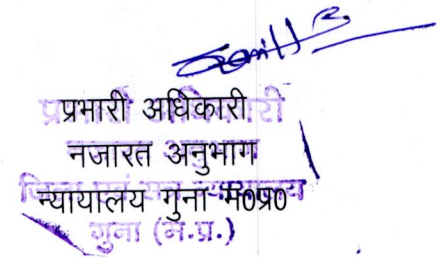 प्रभारी अधिकारी
नजारत अनुभाग
न्यायालय गुना म०प्र०
गुना (म.प्र.)